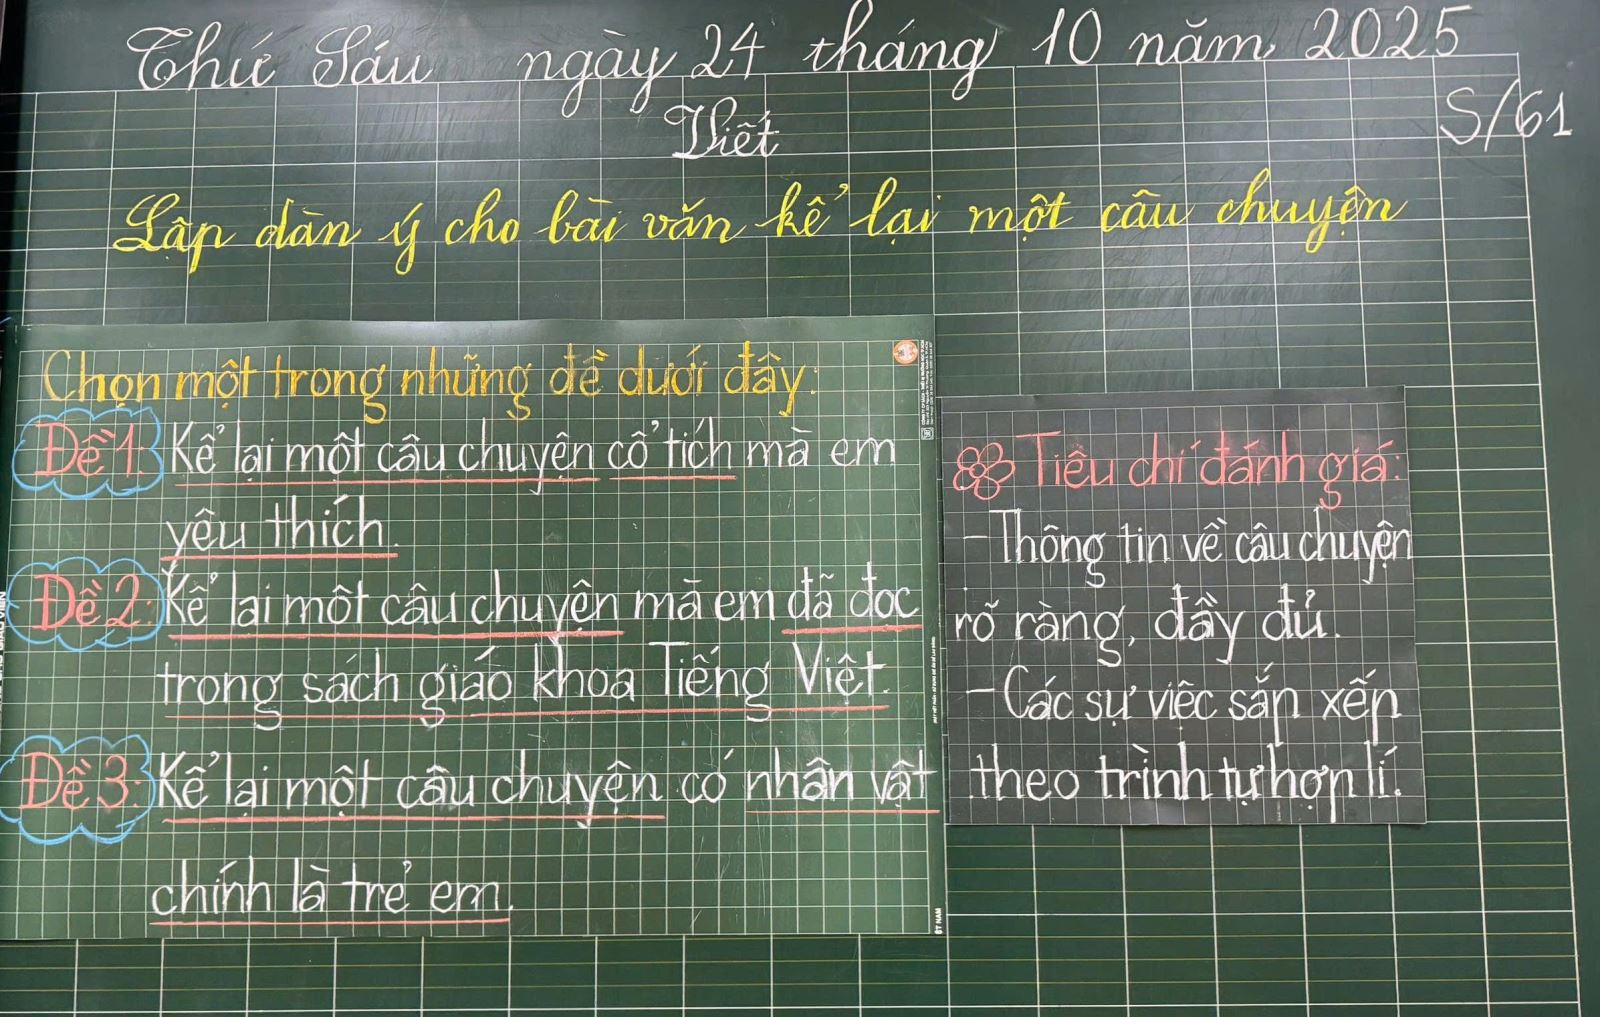 Thứ Sáu ngày 24 tháng 10 năm 2025
Viết
S/61
Lập dàn ý cho bài văn kể lại một câu chuyện
Chọn một trong những đề dưới đây:
Đề 1: Kể lại một câu chuyện cổ tích mà em
yêu thích.
Đề 2: Kể lại một câu chuyện mà em đã đọc
trong sách giáo khoa Tiếng Việt.
Đề 3: Kể lại một câu chuyện có nhân vật
chính là trẻ em.
Tiêu chí đánh giá:
- Thông tin về câu chuyện
rõ ràng, đầy đủ.
- Các sự việc sắp xếp
theo trình tự hợp lí.